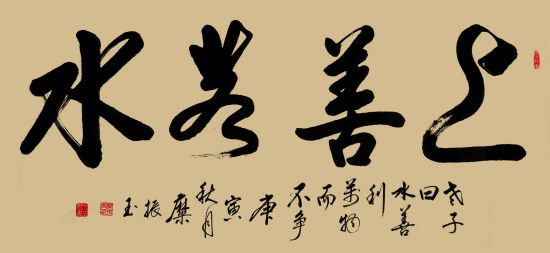 上善若水
老子曰水善利萬物而不争庚寅秋月糜振玉